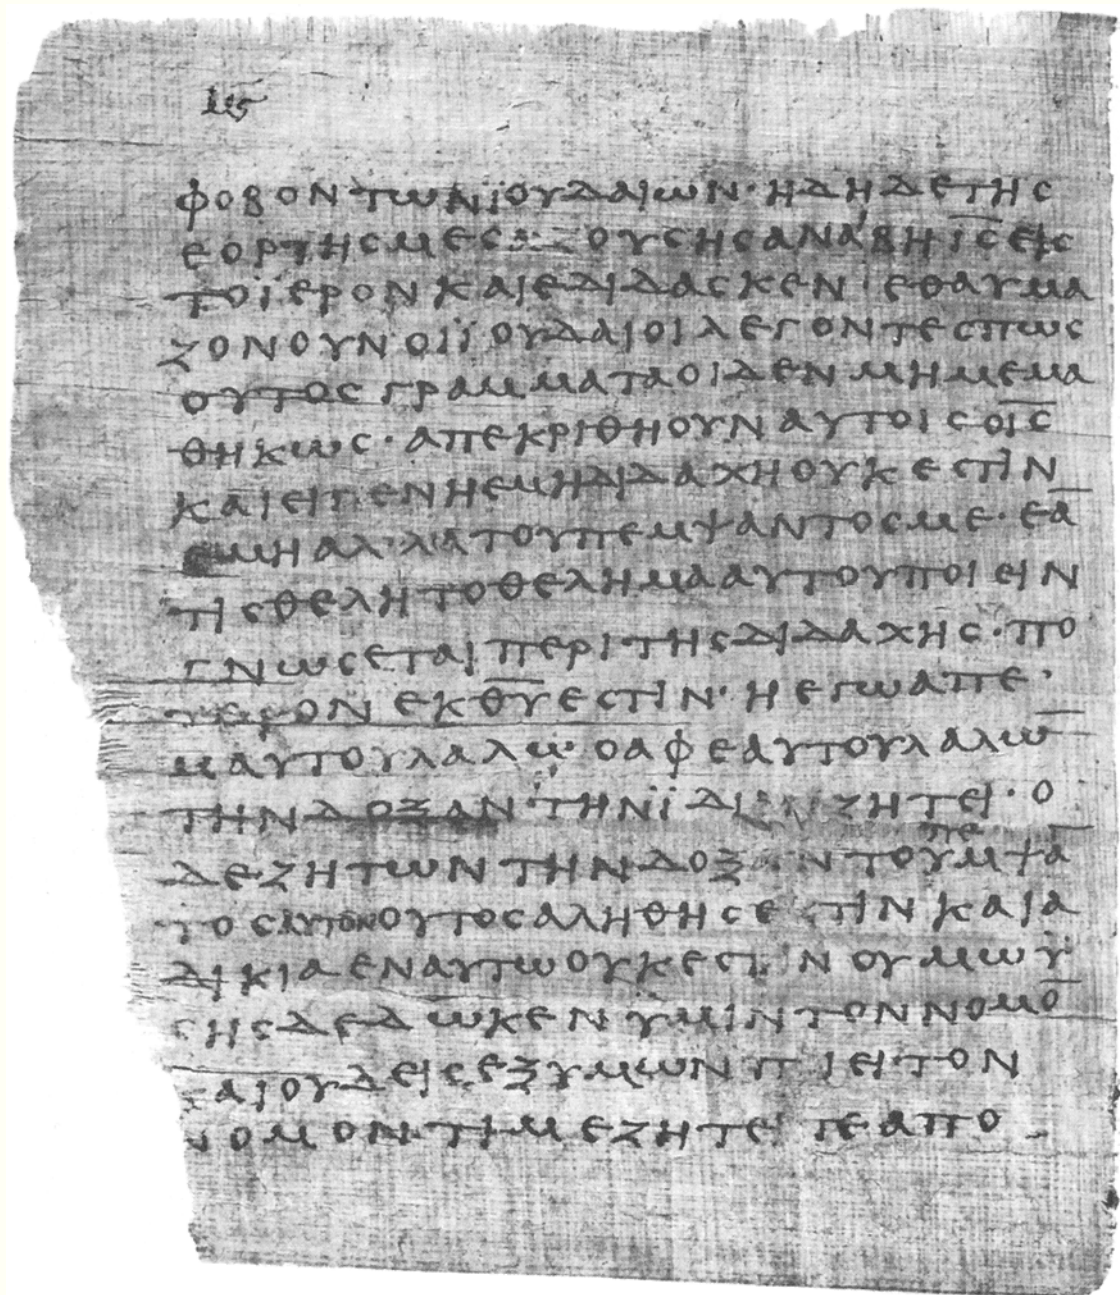 μϛ
φοβον των ϊουδαιων· ηδη δε της
εορτης μεσ ζουσης αναβη ι̅ς̅ εις
το ϊερον και εδιδασκεν· εθαυμα
ζον ουν οι ϊουδαιοι λεγοντες πως
ουτος γραμματα οιδεν μη μεμα
θηκως· απεκριθη ουν αυτοις ο ι̅ς̅
και ειπεν η εμη διδαχη ουκ εστιν
εμη αλ'λα του πεμψαντος με· εα̅
τις θελη το θελημα αυτου ποιειν
γνωσεται περι της διδαχης· πο
τερον εκ θ̅υ̅ εστιν· η εγω απε
μαυτου λαλω· ο αφ εαυτου λαλω̅
την δοξαν την ϊδιαν ζητει· ο
δε ζητων την δοξαν του πεμψα̅
τος αυτον ουτος αληθης εστιν και α
δικια εν αυτω ουκ εστιν ου μωϋ
σης δεδωκεν ϋμιν τον νομο̅
και ουδεις εξ ϋμων ποιει τον
νομον· τι με ζητειτε απο